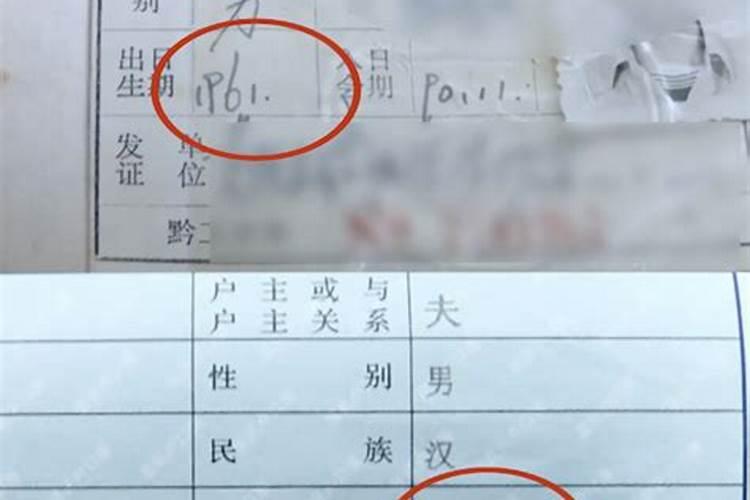 别
出生日期 1961. 入会日期 90.11.
发证单位
黔
户主或与
户主关系 夫
性别 男
民族 汉